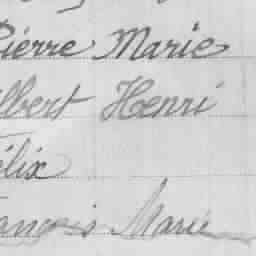 Pierre Marie
lbert Henri
élix
rançois Marie